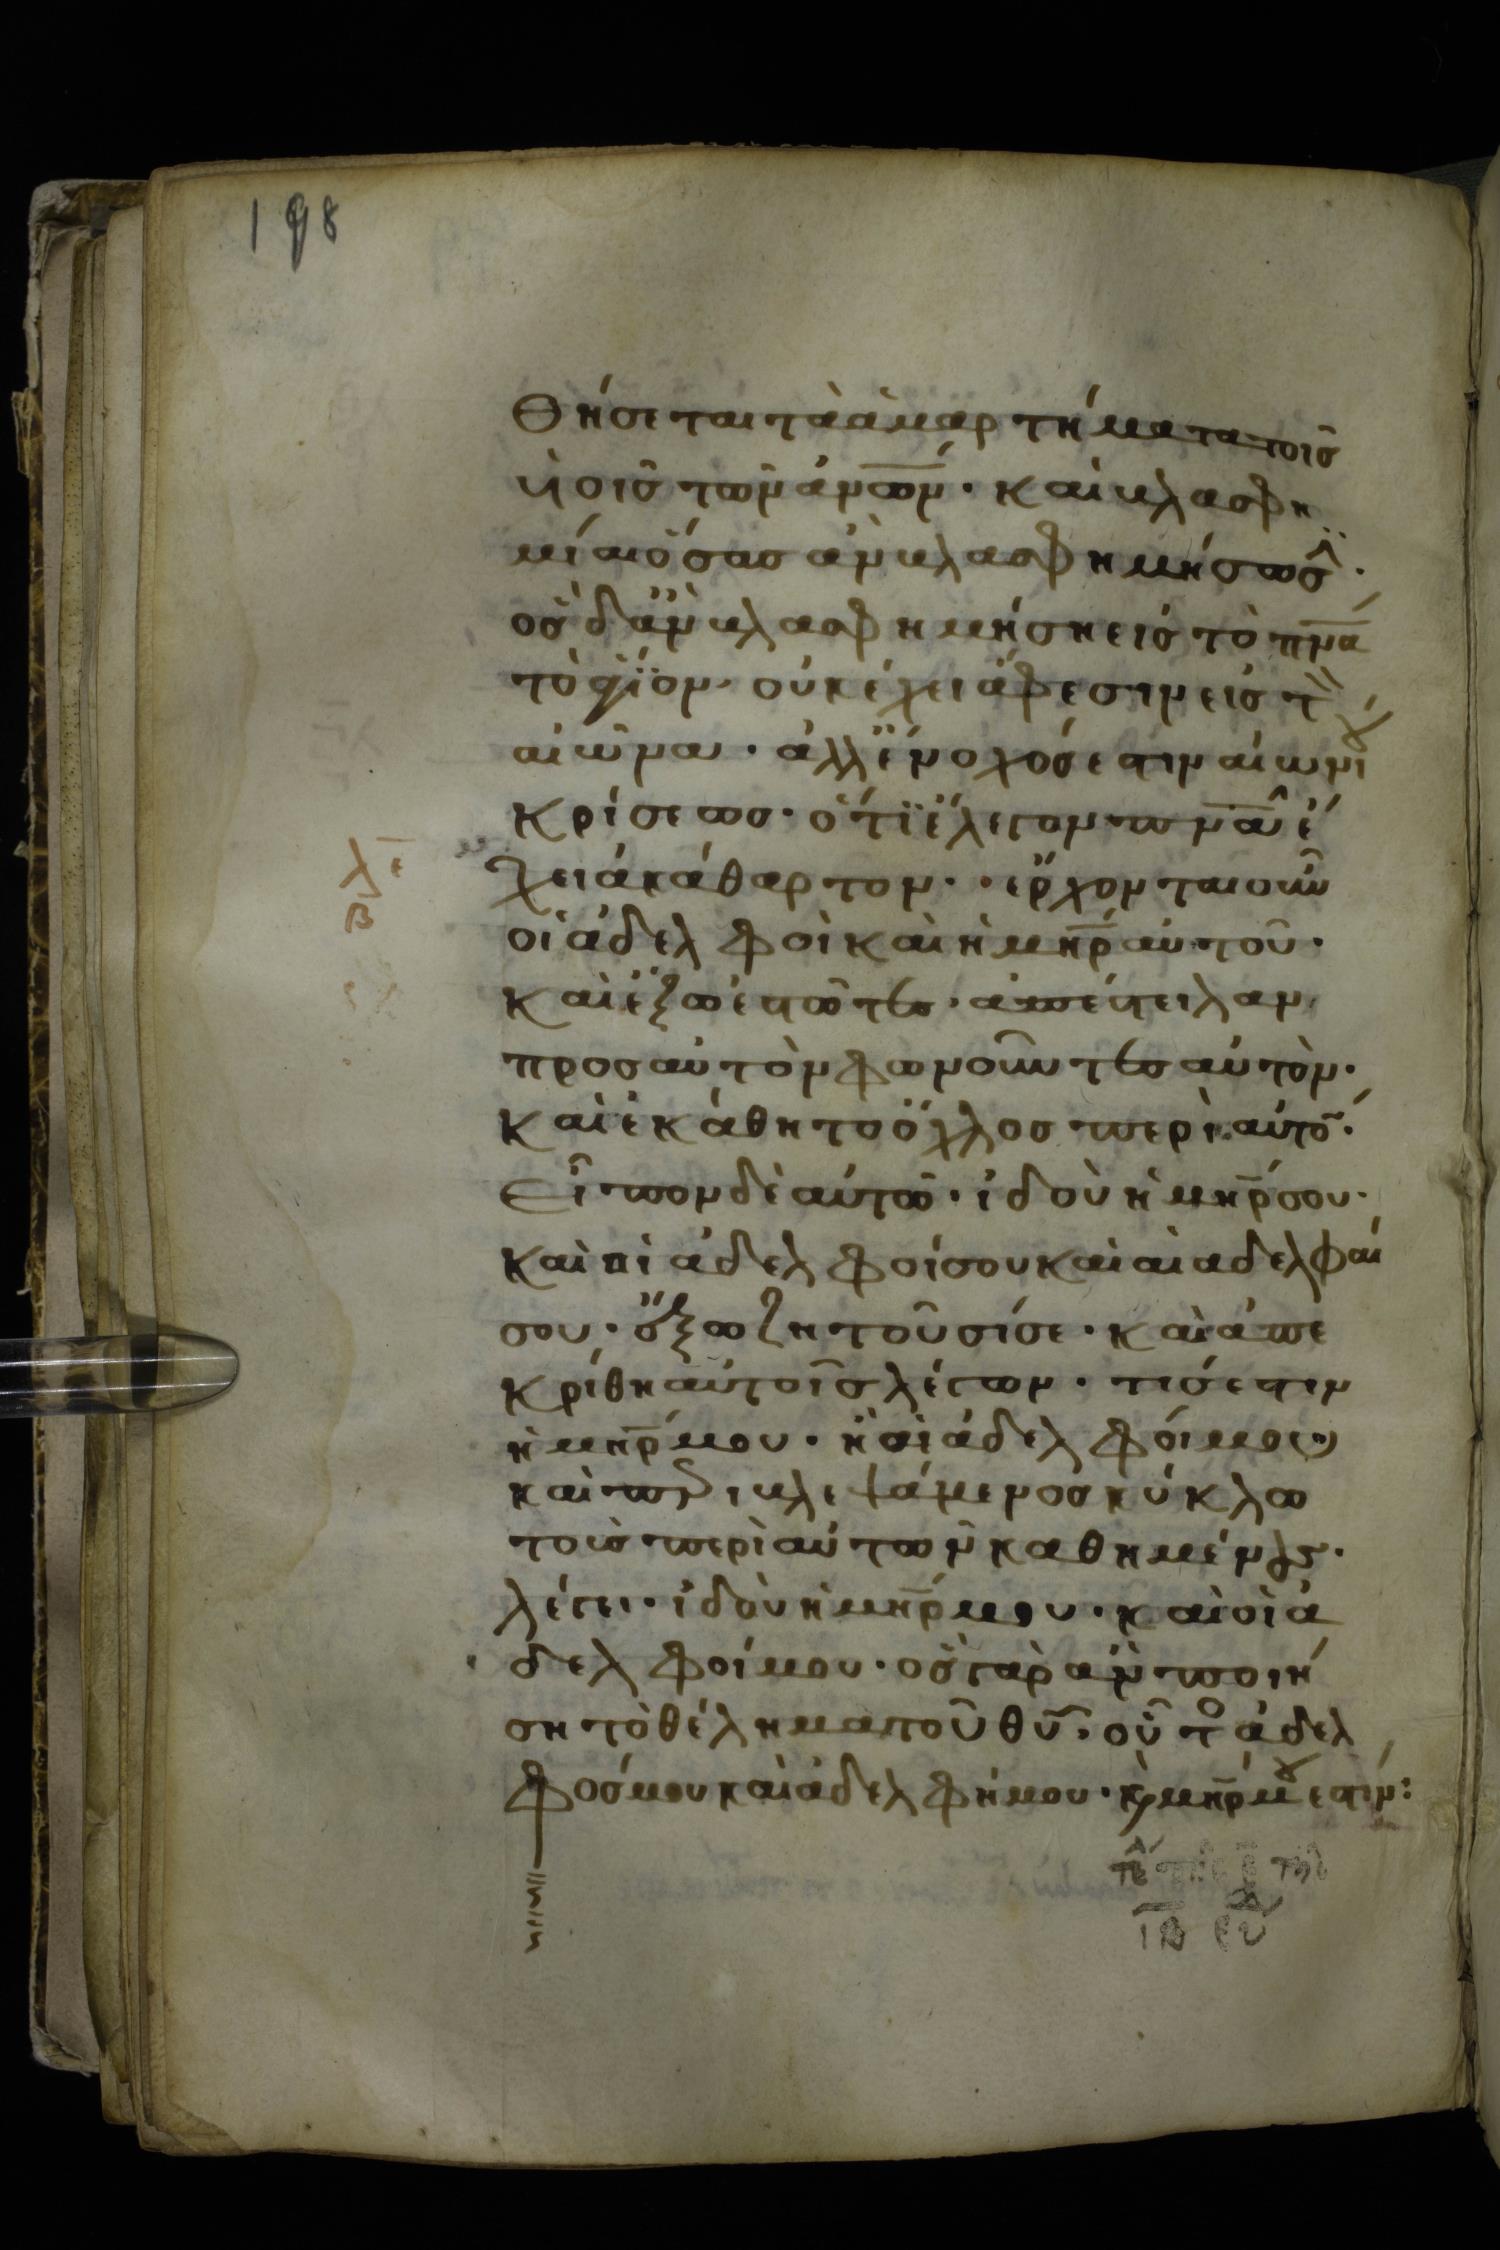 198
θήσεται τὰ ἁμαρτήματα τοῖς
ὑιοῖς τῶν ἀν̅ω̅ν· καὶ βλασφη
μίαι ὅσας ἂν βλασφημήσωσ·
ὃς δ ἂν βλασφημήση εἰς τὸ πν̅α
τὸ ἅγϊον· οὐκ ἔχει ἄφεσιν εἰς τὸν
αἰῶνα· ἀλλ ἔνοχός ἐστιν αἰωνίου
κρίσεως· ὅτϊ ἔλεγον πν̅α ἔ
χει ἀκάθαρτον· ἔρχονται οὖν
λε
β
οἱ ἀδελφοὶ καὶ ἡ μη̅ρ αὐτοῦ·
καὶ ἔξω ἑστῶτες· ἀπέστειλαν
προς αὐτὸν φωνοῦντες αὐτὸν·
καὶ ἐκάθητο ὄχλος περὶ αὐτὸν·
Εἶπον δὲ αὐτῶ· ἰδοὺ ἡ μη̅ρ σου·
καὶ οἱ ἀδελφοί σου καὶ αἱ αδελφαί
σου· ἔξω ζητοῦσί σε· καὶ ἀπε
κρίθη αὐτοῖς λέγων· τίς ἐστιν
ἡ μη̅ρ μου· ἢ οἱ ἀδελφοί μου
καὶ περιβλεψάμενος κύκλω
τοὺς περὶ αὐτὼν καθημένους·
λέγει· ἰδοὺ ἡ μη̅ρ μου· καὶ οἱ ἀ
δελφοί μου· ὃς γὰρ ἂν ποιή
ση τὸ θέλημα τοῦ θυ̅· οὗτος ἀδελ
φός μου καὶ ἀδελφή μου· καὶ μη̅ρ μου ἐστίν: